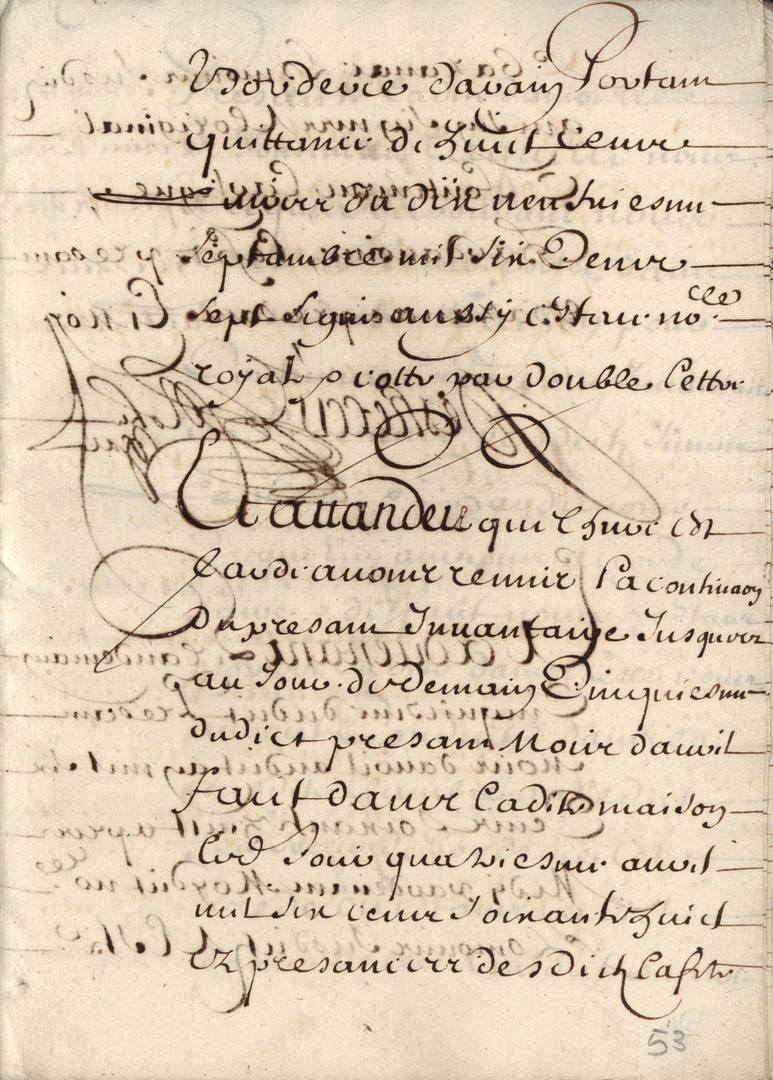 portant
quittance de huit cens
du dix neufviesme
septambre mil six cens
sept signé aussy no.lle
royal & cotté par double lettre
Et attandeu qu'il heure est
tarde avons remise la continuaon
du presant Invantaire Jusques
au Jour de demain Cinquiesme
dudict presant Moix d'avril
faict dans ladite maison
led Jour quatriesme avril
mil six cens soixante huict
ez presances desdicts
53